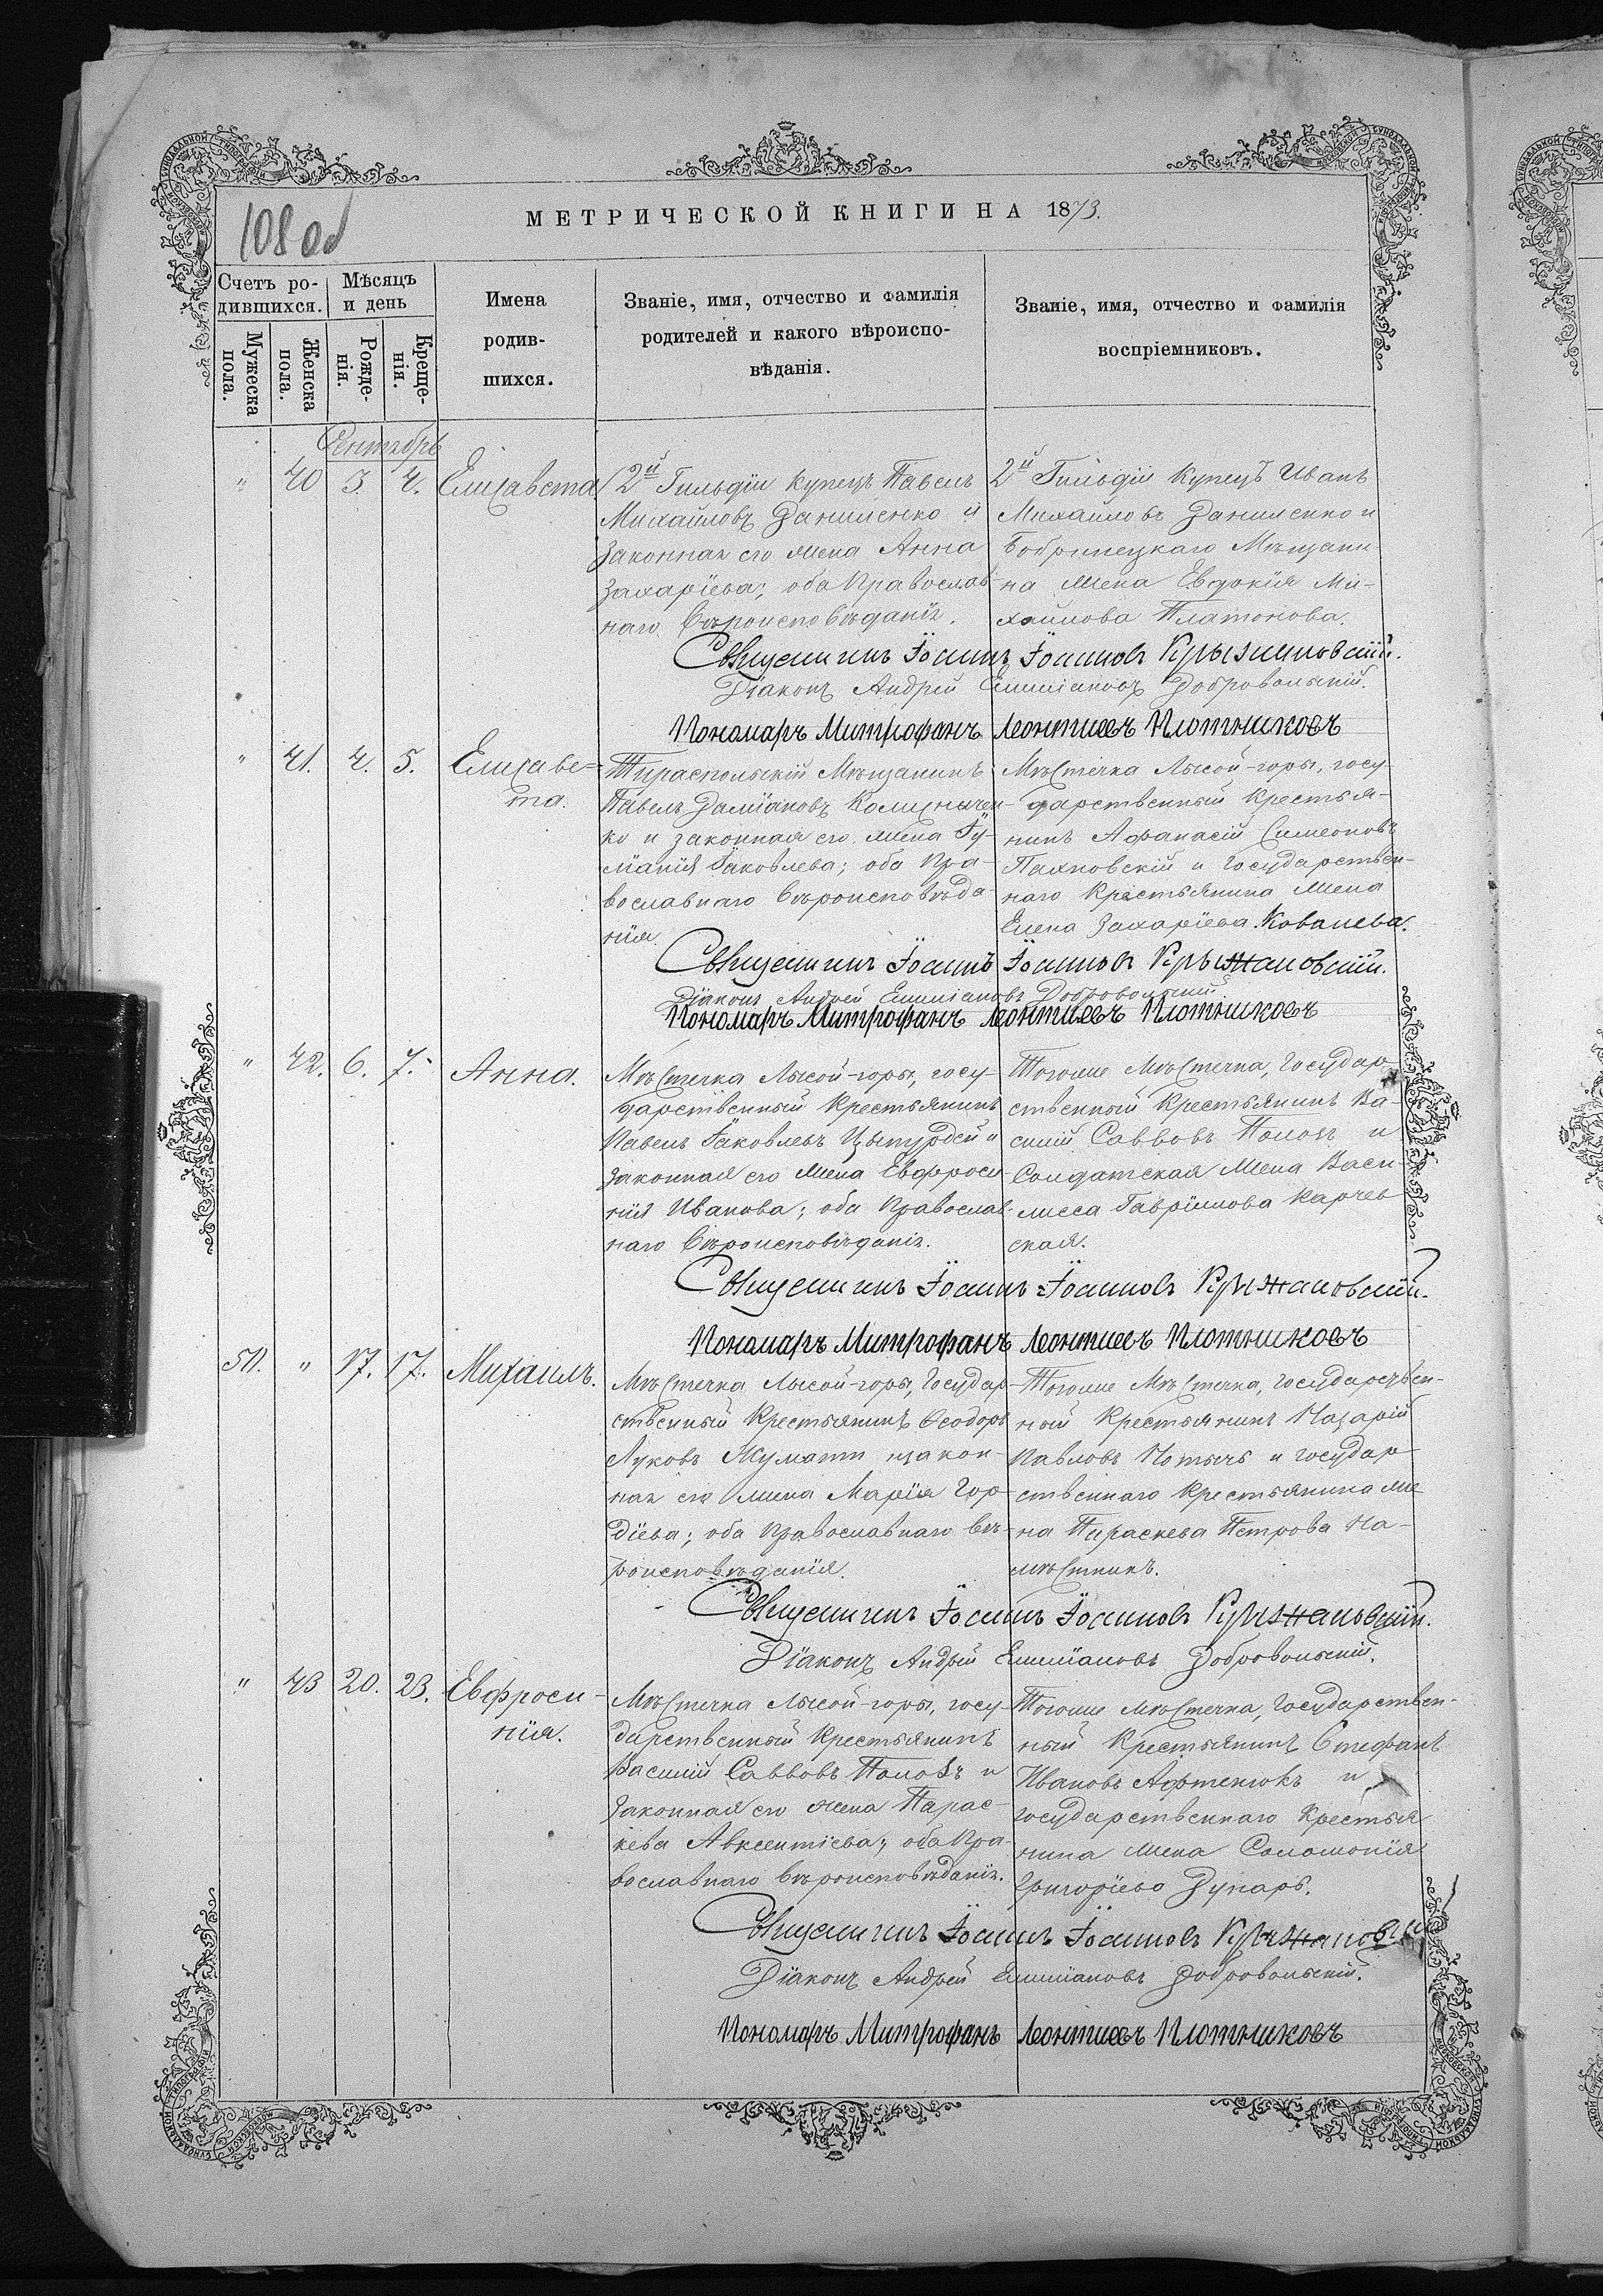 108 об
МЕТРИЧЕСКОЙ КНИГИ НА 1873.
Счетъ ро-
дившихся.
Мѣсяцъ
и день
Мужеска
пола.
Женска
пола.
Рожде-
нія.
Креще-
нія.
Имена
родив-
шихся.
Званіе, имя, отчество и фамилія
родителей и какого вѣроиспо-
вѣданія.
Званіе, имя, отчество и фамилія
воспріемниковъ.
Сентябрь
" 40 3. 4. Елисавета
2й Гильдіи купецъ Павелъ
Михайловъ Даниленко и
законная его жена Анна
Захаріева; оба Православ-
наго Вѣроисповѣданія.
2й Гильдіи Купецъ Иванъ
Михайловъ Даниленко и
Бобринецкаго Мѣщани-
на жена Евдокія Ми-
хайлова Платонова.
Священникъ Іоаннъ Іоанновъ Крыжановскій.
Діаконъ Андрей Емиліановъ Добровольскій.
Пономарь Митрофанъ Леонтіевъ Плотниковъ
" 41. 4. 5. Елисаве-
та.
Тираспольскій Мѣщанинъ
Павелъ Даміановъ
и законная его жена Іу-
ліанія Іаковлева; оба Пра-
вославнаго Вѣроисповѣда-
нія.
Мѣстечка Лысой-горы, госу-
дарственный Крестья-
нинъ Афанасій Симеоновъ
Пахновскій и Государствен-
наго Крестьянина жена
Елена Захаріева Ковалева.
Священникъ Іоаннъ Іоанновъ Крыжановскій.
Діаконъ Андрей Емиліановъ Добровольскій
Пономарь Митрофанъ Леонтіевъ Плотниковъ
" 42. 6. 7. Анна.
Мѣстечка Лысой-горы, госу-
дарственный Крестьянинъ
Павелъ Іаковлевъ и
законная его жена Евфроси-
нія Иванова; оба Православ-
наго Вѣроисповѣданія.
Тогоже Мѣстечка, Государ-
ственный Крестьянинъ Ва-
силій Саввовъ Поповъ и
Солдатская жена Васи-
лисса Гавріилова Карчев-
ская.
Священникъ Іоаннъ Іоанновъ Крыжановскій.
Пономарь Митрофанъ Леонтіевъ Плотниковъ
50. " 17. 17. Михаилъ.
Мѣстечка Лысой-горы, Государ-
ственный Крестьянинъ Ѳеодоръ
Луковъ и закон-
ная его жена Марія Гор-
діева; оба Православнаго Вѣ-
роисповѣданія.
Тогоже Мѣстечка, государствен-
ный Крестьянинъ Назарій
Павловъ и государ-
ственнаго Крестьянина же-
на Параскева Петрова На-
мѣстникъ.
Священникъ Іоаннъ Іоанновъ Крыжановскій.
Діаконъ Андрей Емиліановъ Добровольскій.
" 43 20. 23. Евфроси-
нія.
Мѣстечка Лысой-горы, госу-
дарственный Крестьянинъ
Василій Саввовъ Поповъ и
законная его жена Парас-
кева Авксентіева; оба Пра-
вославнаго вѣроисповѣданія.
Тогоже Мѣстечка, Государствен-
ный Крестьянинъ Стефанъ
Ивановъ Афтенюкъ и
государственнаго Крестья-
нина жена Соломонія
Григоріева
Священникъ Іоаннъ Іоанновъ Крыжановскій
Діаконъ Андрей Емиліановъ Добровольскій.
Пономарь Митрофанъ Леонтіевъ Плотниковъ